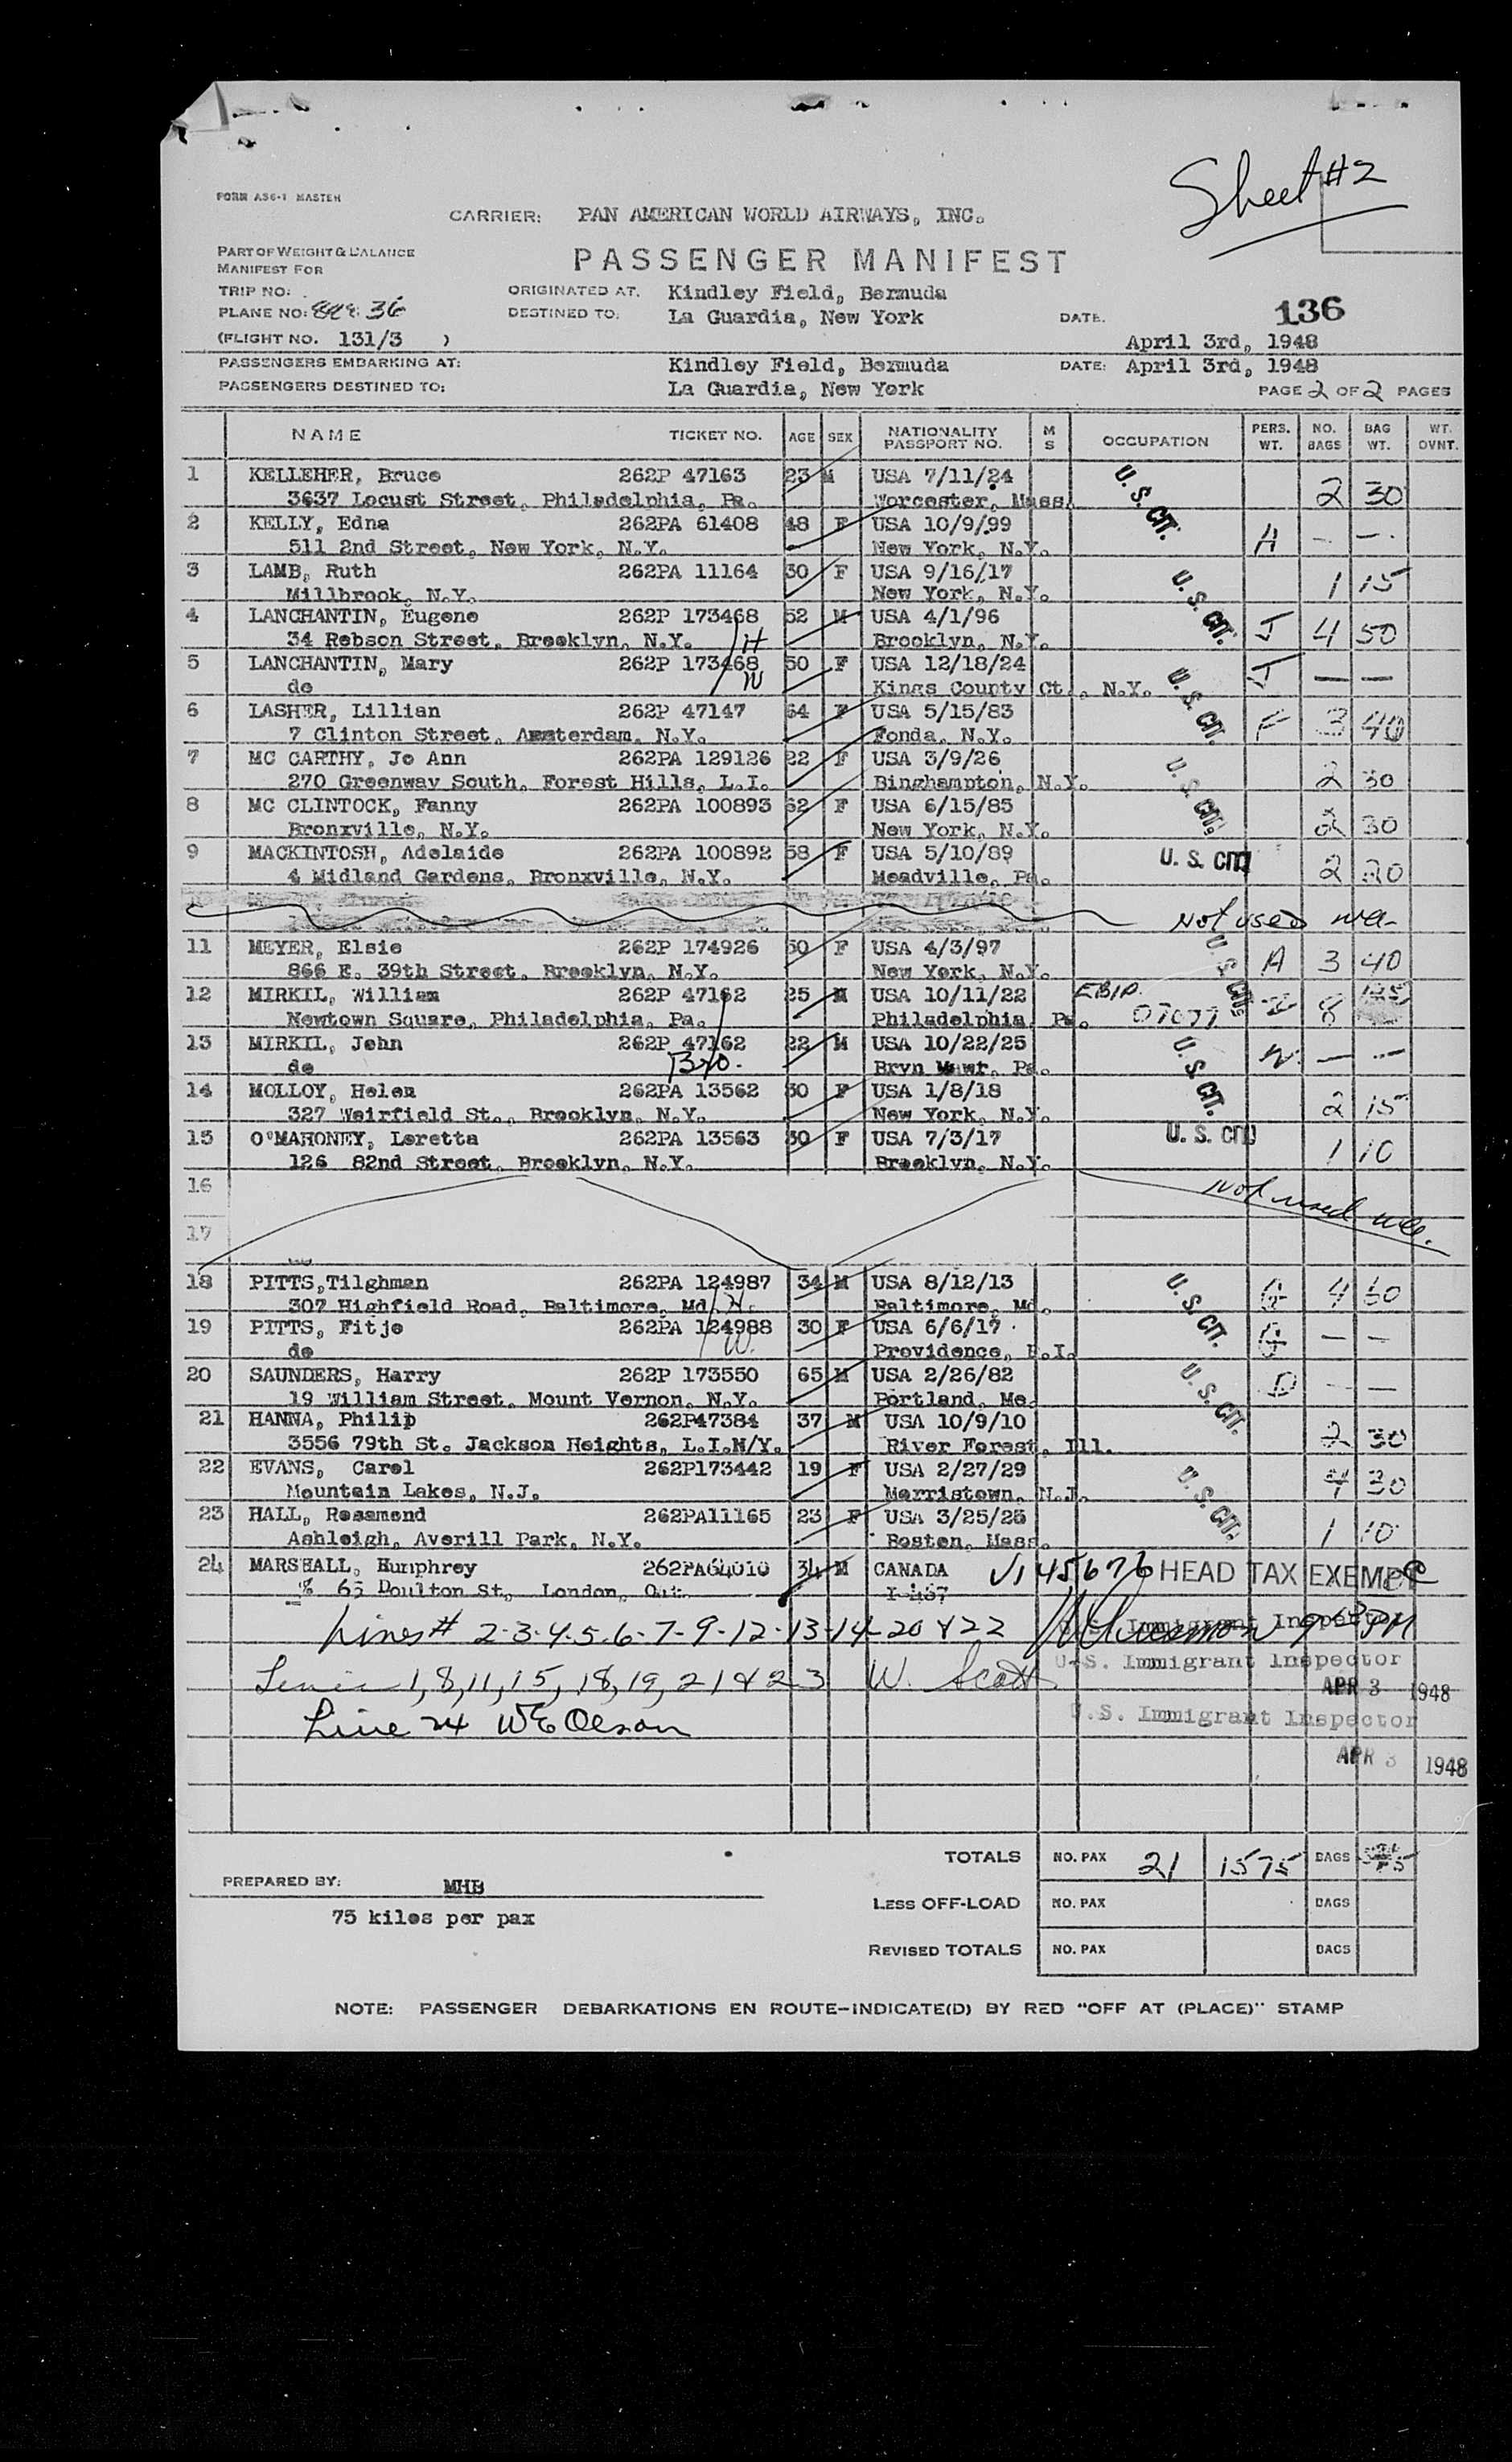 Sheet #2
FORM AS6-1 MASTER
CARRIER: PAN AMERICAN WORLD AIRWAYS, INC.
PART OF WEIGHT & BALANCE
MANIFEST FOR
PASSENGER MANIFEST
TRIP NO:
ORIGINATED AT. Kindley Field, Bermuda
136
PLANE NO: 36
DESTINED TO: La Guardia, New York
DATE. April 3rd, 1948
(FLIGHT NO. 131/3 )
PASSENGERS EMBARKING AT: Kindley Field, Bermuda DATE: April 3rd, 1948
PASSENGERS DESTINED TO: La Guardia, New York PAGE 2 OF 2 PAGES
NAME TICKET NO. AGE SEX NATIONALITY PASSPORT NO. M S OCCUPATION PERS. WT. NO. BAGS BAG WT. WT. OVNT.
1 KELLEHER, Bruce 262P 47163 23 M USA 7/11/24 U. S. CIT.
3637 Locust Street, Philadelphia, Pa. Worcester, Mass. 2 30
2 KELLY, Edna 262PA 61408 48 F USA 10/9/99
511 2nd Street, New York, N.Y. New York, N.Y. H - -
3 LAMB, Ruth 262PA 11164 30 F USA 9/16/17 U. S. CIT.
Millbrook, N.Y. New York, N.Y. 1 15
4 LANCHANTIN, Eugene 262P 173468 52 M USA 4/1/96
34 Rebson Street, Brooklyn, N.Y. H Brooklyn, N.Y. J 4 50
5 LANCHANTIN, Mary 262P 173468 50 F USA 12/18/24 U. S. CIT.
do W Kings County Ct., N.Y. J — —
6 LASHER, Lillian 262P 47147 64 F USA 5/15/83
7 Clinton Street, Amsterdam, N.Y. Fonda, N.Y. F 3 40
7 MC CARTHY, Jo Ann 262PA 129126 22 F USA 3/9/26 U. S. CIT.
270 Greenway South, Forest Hills, L.I. Binghampton, N.Y. 2 30
8 MC CLINTOCK, Fanny 262PA 100893 62 F USA 6/15/85
Bronxville, N.Y. New York, N.Y. 2 30
9 MACKINTOSH, Adelaide 262PA 100892 58 F USA 5/10/89 U. S. CIT
4 Midland Gardens, Bronxville, N.Y. Meadville, Pa. 2 20
Not used
11 MEYER, Elsie 262P 174926 50 F USA 4/3/97 U. S. CIT.
866 E. 39th Street, Brooklyn, N.Y. New York, N.Y. A 3 40
12 MIRKIL, William 262P 47162 25 M USA 10/11/22
Newtown Square, Philadelphia, Pa. Philadelphia, Pa. 07077 8
13 MIRKIL, John 262P 47162 22 M USA 10/22/25 U. S. CIT.
do Bro. Bryn Mawr, Pa. — —
14 MOLLOY, Helen 262PA 13562 30 F USA 1/8/18
327 Weirfield St., Brooklyn, N.Y. New York, N.Y. 2 15
15 O'MAHONEY, Loretta 262PA 13563 30 F USA 7/3/17 U. S. CIT
126 82nd Street, Brooklyn, N.Y. Brooklyn, N.Y. 1 10
16 Not used
17
18 PITTS,Tilghman 262PA 124987 34 M USA 8/12/13 U. S. CIT.
307 Highfield Road, Baltimore, Md. H. Baltimore, Md. G 4
19 PITTS, Fitje 262PA 124988 30 F USA 6/6/17
do W. Providence, R.I. G — —
20 SAUNDERS, Harry 262P 173550 65 M USA 2/26/82 U. S. CIT.
19 William Street, Mount Vernon, N.Y. Portland, Me. D — —
21 HANNA, Philip 262P47384 37 M USA 10/9/10
3556 79th St. Jackson Heights, L.I.N/Y. River Forest, Ill. 2 30
22 EVANS, Carol 262P173442 19 F USA 2/27/29 U. S. CIT.
Mountain Lakes, N.J. Morristown, N.J. 30
23 HALL, Rosamond 262PA11165 23 F USA 3/25/25
Ashleigh, Averill Park, N.Y. Boston, Mass. 1 10
24 MARSHALL, Humphrey 262PA64010 34 M CANADA V145676 HEAD TAX EXEMPT
% 65 Doulton St., London, Ont.
Lines # 2-3-4-5-6-7-9-12-13-14-20 & 22 Immigrant Inspector
Lines 1, 8, 11, 15, 18, 19, 21 & 23 W. Scott U.S. Immigrant Inspector
APR 3 1948
Line 24 WE Olson U.S. Immigrant Inspector
APR 3 1948
TOTALS NO. PAX 21 1575 BAGS
PREPARED BY: MHB
LESS OFF-LOAD NO. PAX BAGS
75 kilos per pax
REVISED TOTALS NO. PAX BAGS
NOTE: PASSENGER DEBARKATIONS EN ROUTE-INDICATE(D) BY RED "OFF AT (PLACE)" STAMP